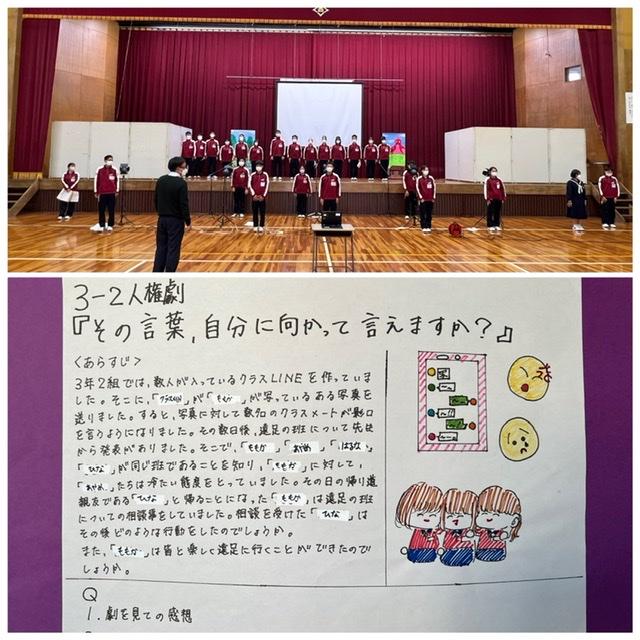 3-2人権劇
『その言葉,自分に向かって言えますか？』
〈あらすじ〉
3年2組では,数人が入っているクラスLINEを作っていま
した。そこに,「クラスメイト」が「ももか」が写っているある写真を
送りました。すると,写真に対して数名のクラスメートが悪口
を言うようになりました。その数日後,遠足の班について先生
から発表がありました。そこで,「ももか」「あやめ」「はるな」
「ひな」が同じ班であることを知り,「ももか」に対して,
「あやめ」たちは冷たい態度をとっていました。その日の帰り道
親友である「ひな」と帰ることになった「ももか」は遠足の班
についての相談事をしていました。相談を受けた「ひな」は
その後どのような行動をしたのでしょうか。
また,「ももか」は皆と楽しく遠足に行くことができたので
しょうか。
Q
1.劇を見ての感想